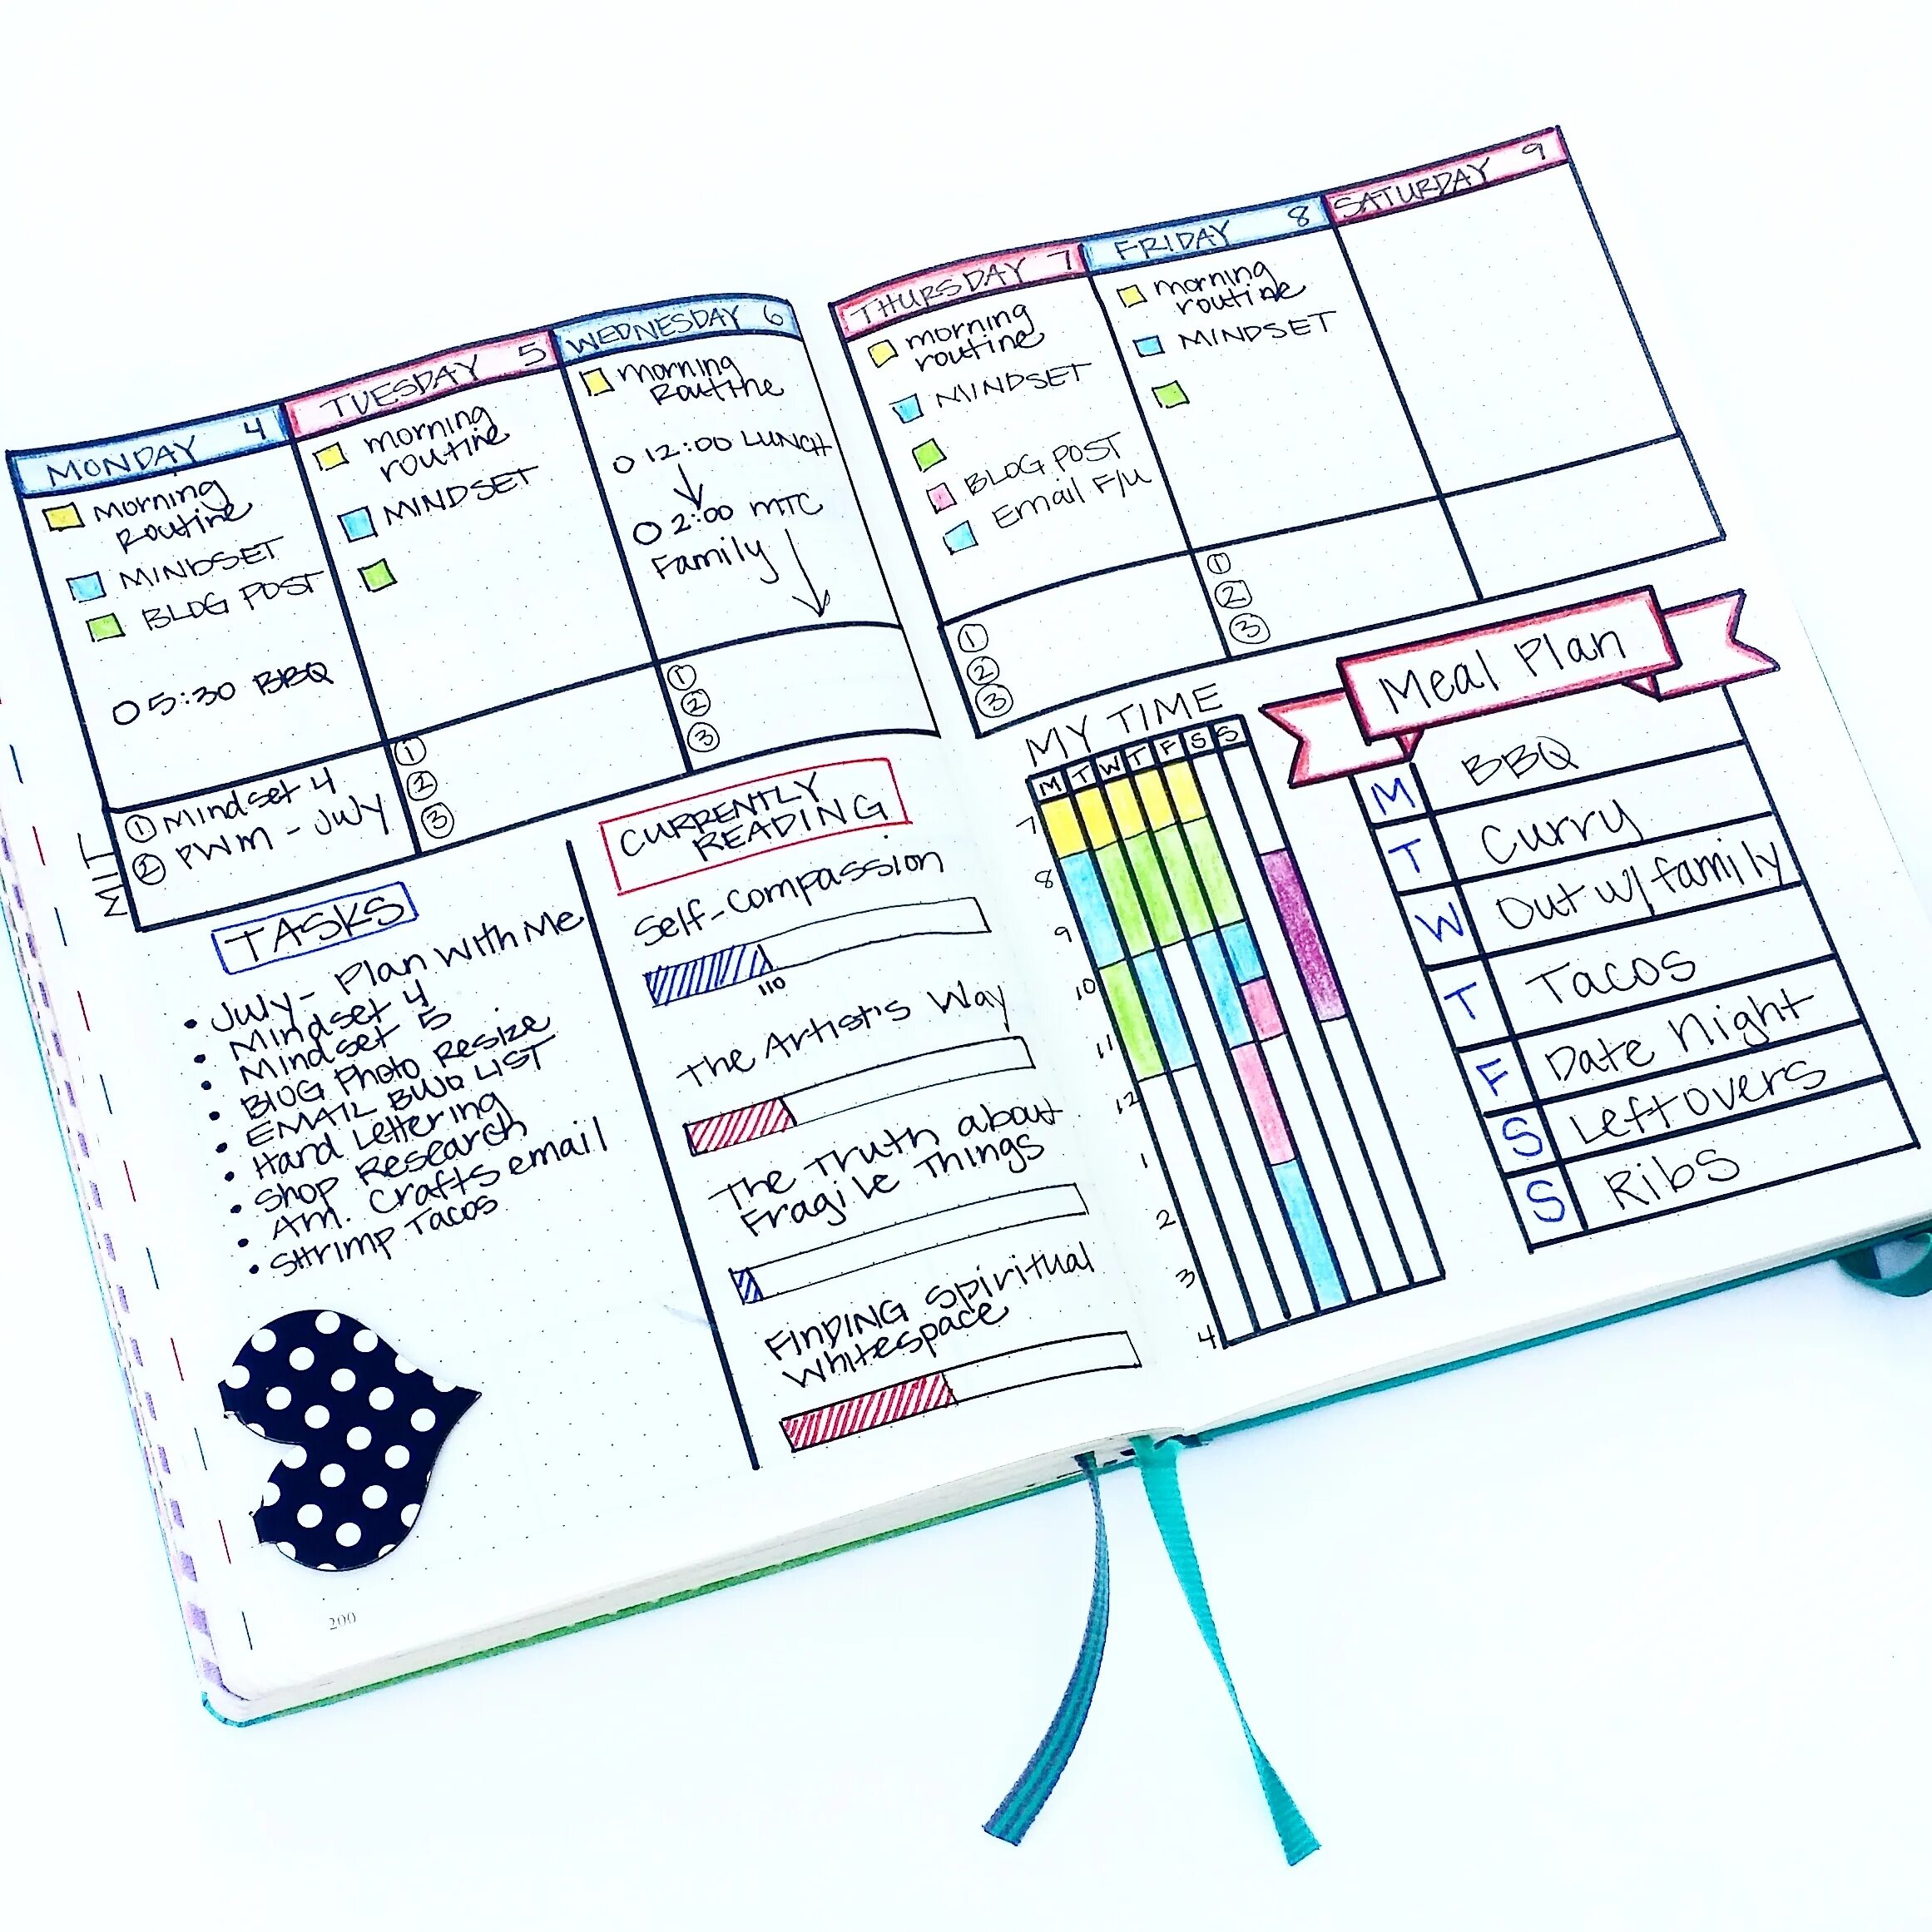 MONDAY 4
morning
routine
MINDSET
BLOG POST
5:30 BBQ
MIT
① Mindset 4
② PWM - July
TUESDAY 5
morning
routine
MINDSET
①
②
③
WEDNESDAY 6
morning
Routine
12:00 LUNCH
2:00 MTC
Family
①
②
③
THURSDAY 7
morning
routine
MINDSET
BLOG POST
Email F/U
①
②
③
FRIDAY 8
morning
routine
MINDSET
①
②
③
SATURDAY 9
TASKS
• July - Plan With Me
• Mindset 4
• Mindset 5
• BLOG Photo Resize
• EMAIL BWB LIST
• Hand Lettering
• Shop Research
• Am. Crafts email
• Shrimp Tacos
CURRENTLY
READING
Self-Compassion
110
The Artist's Way
The Truth about
Fragile Things
FINDING Spiritual
Whitespace
MY TIME
M T W T F S S
7
8
9
10
11
12
1
2
3
4
Meal Plan
M BBQ
T Curry
W Out w/ family
T Tacos
F Date Night
S Leftovers
S Ribs
200